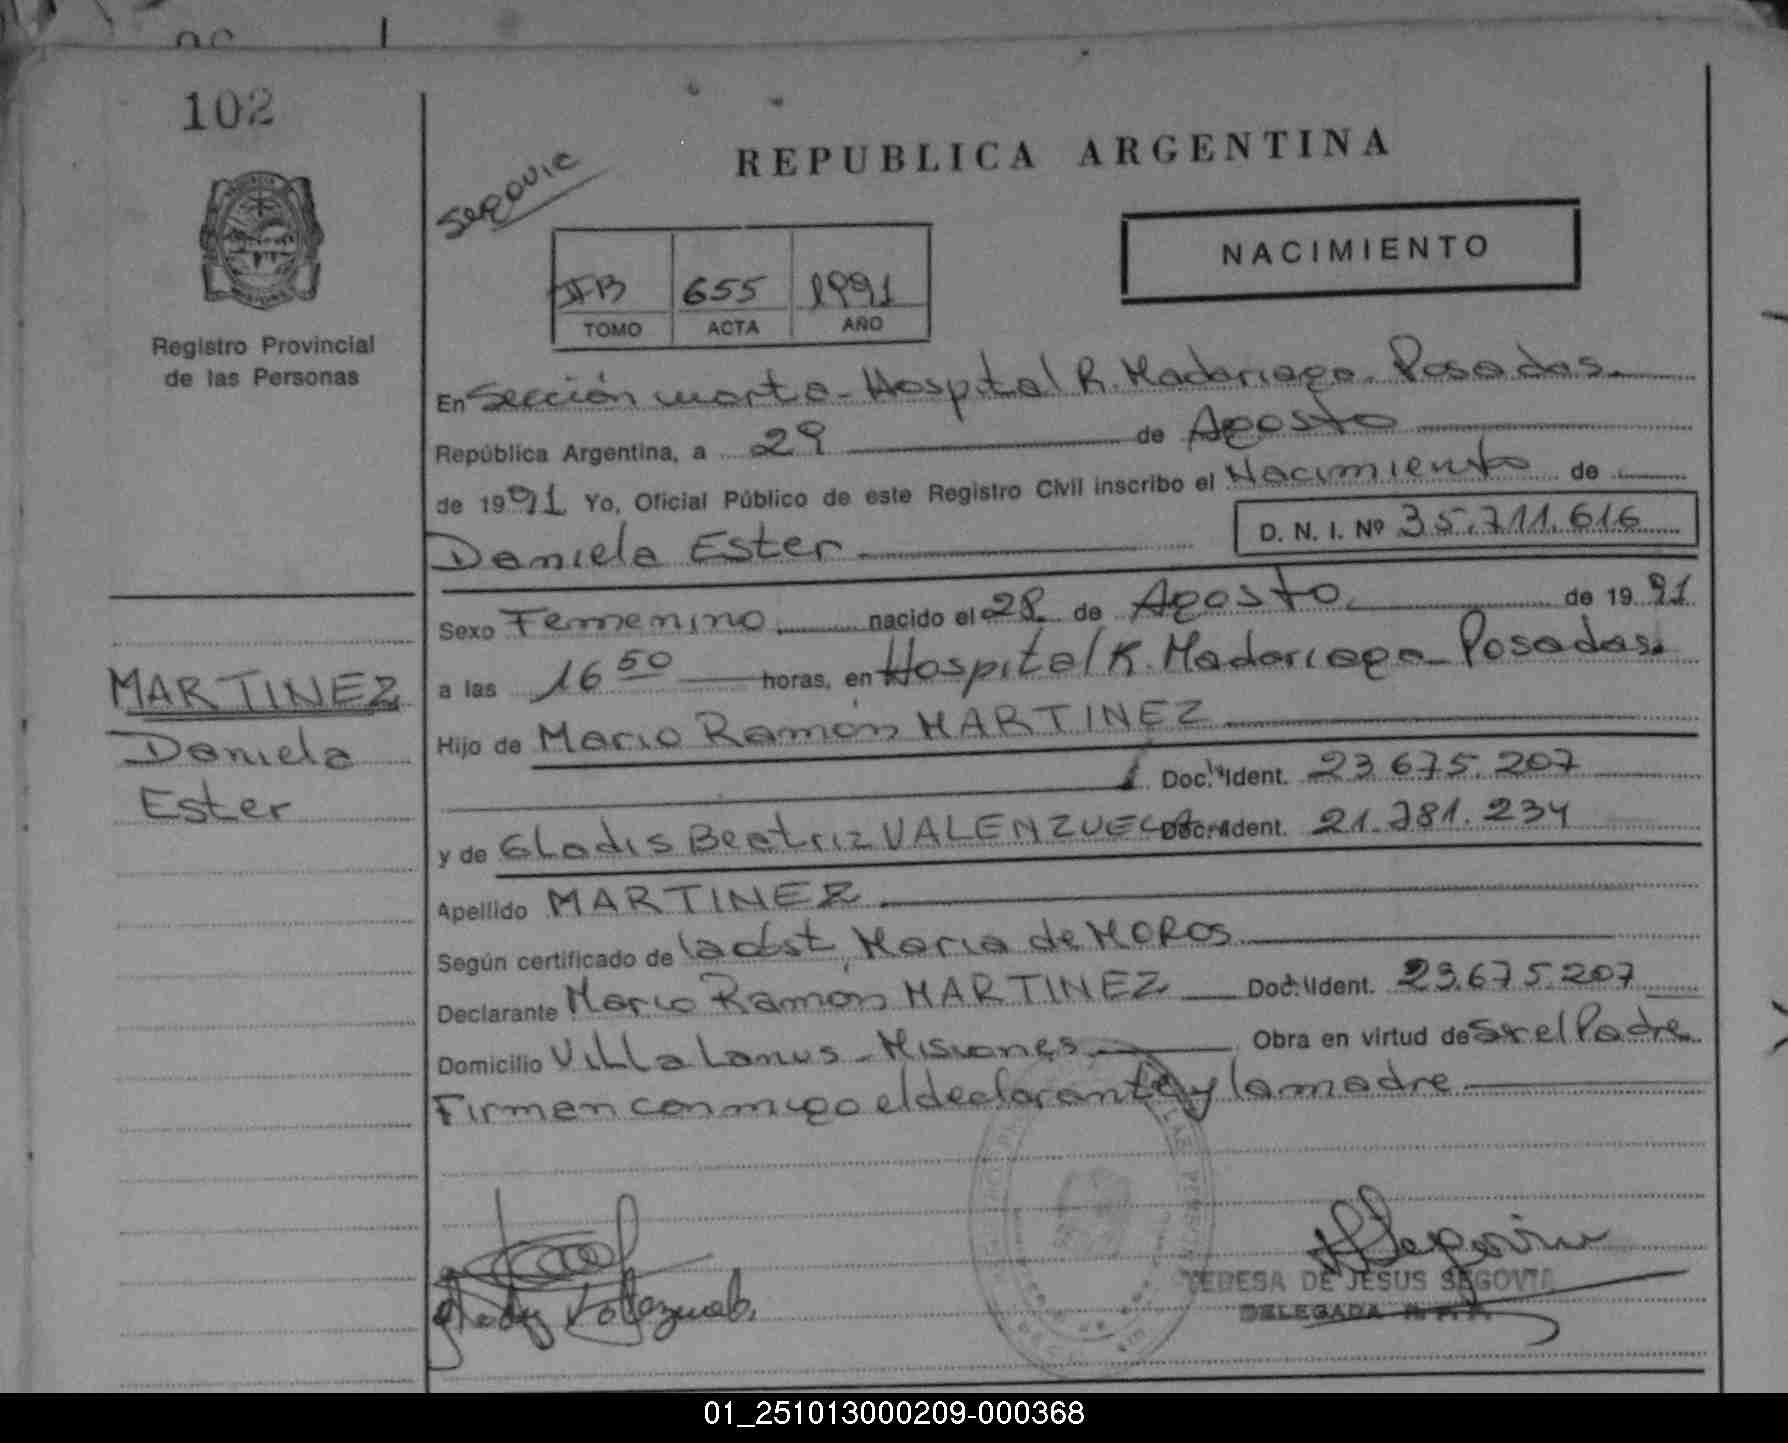 102
REPUBLICA ARGENTINA
Segovia
NACIMIENTO
655 1991
TOMO ACTA AÑO
Registro Provincial
de las Personas
En Sección cuarta - Hospital R. Madariaga - Posadas.
República Argentina, a 29 de Agosto
de 1991 Yo, Oficial Público de este Registro Civil inscribo el Nacimiento de
Daniela Ester D. N. I. Nº 35.711.616
Sexo Femenino nacido el 28 de Agosto de 1991
a las 16 50 horas, en Hospital R. Madariaga - Posadas.
MARTINEZ
Daniela
Ester
Hijo de Mario Ramón MARTINEZ
Doc. Ident. 23.675.207
y de Gladis Beatriz VALENZUELA Doc. Ident. 21.781.234
Apellido MARTINEZ
Según certificado de la obst. Maria de MOROS
Declarante Mario Ramón MARTINEZ Doc. Ident. 23.675.207
Domicilio Villa Lanus - Misiones Obra en virtud de Ser el Padre
Firman conmigo el declarante y la madre
Glady Valenzuela.
TERESA DE JESUS SEGOVIA
DELEGADA
01_251013000209-000368